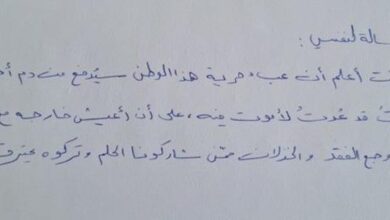 سالة لنفسي :
ت أعلم أن عبء حرية هذا الوطن سيُدفع من دم أح
تُ قد عُدتُ لأموت فيه، على أن أعيش خارجه مع
وجع الفقد والخذلان ممّن شاركونا الحلم وتركوه